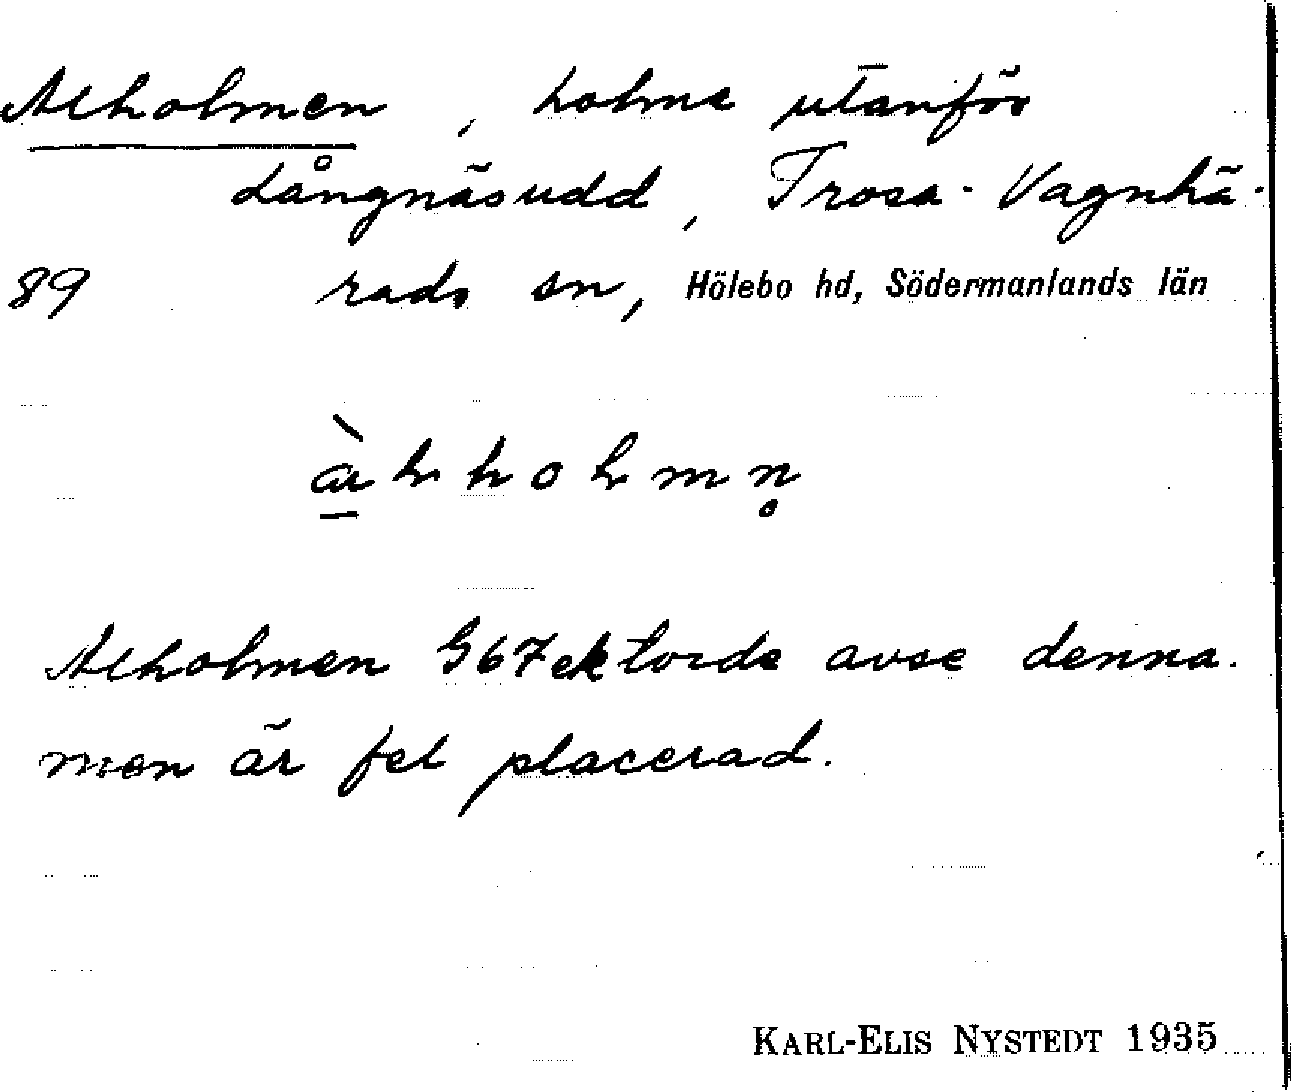 Alholmen, holme utanför
Långnäsudd, Trosa-Vagnhä-
89 rads sn, Hölebo hd, Södermanlands län
Alholmen 567 ek torde avse denna.
men är fel placerad.
KARL-ELIS NYSTEDT 1935